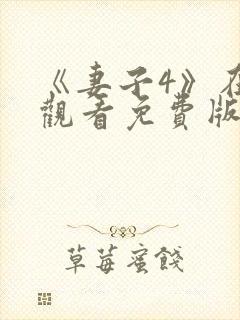 《妻子4》在
觀看免費版
草莓蜜餞